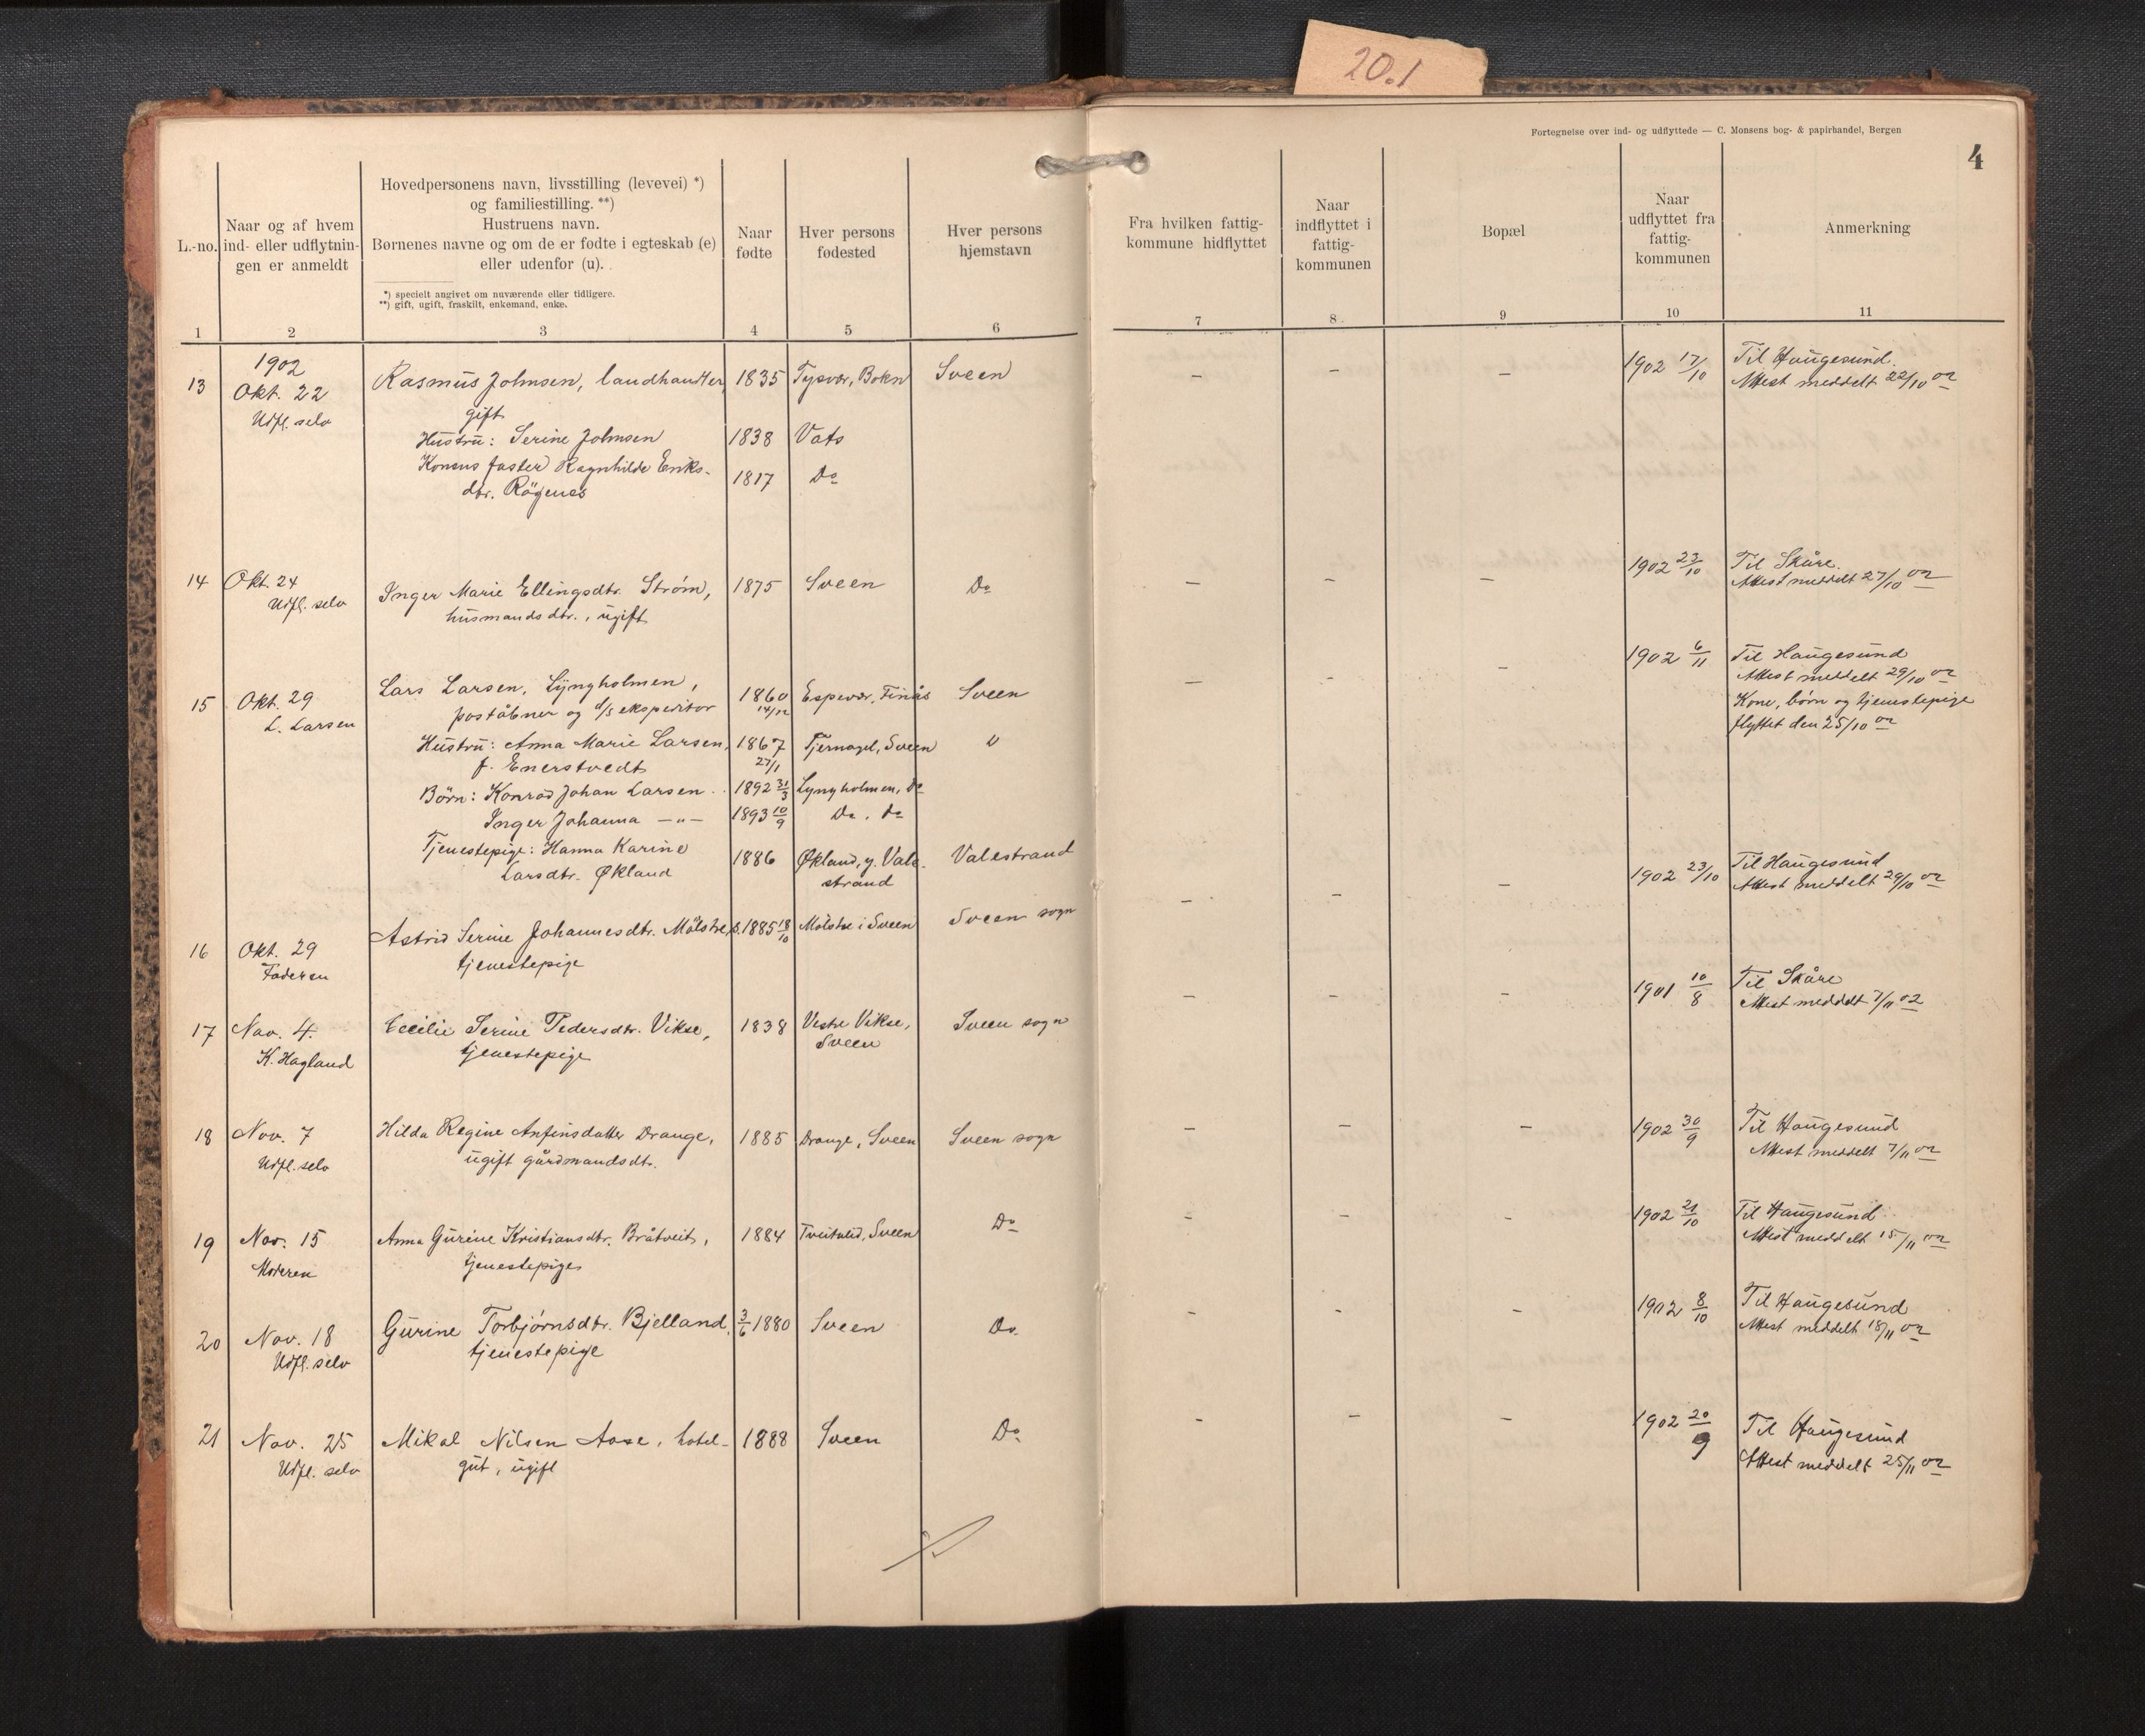 20.1
Fortegnelse over ind- og udflyttede — C. Monsens bog- & papirhandel, Bergen
4
L.-no.
Naar og af hvem
ind- eller udflytnin-
gen er anmeldt
Hovedpersonens navn, livsstilling (levevei) *)
og familiestilling. **)
Hustruens navn.
Børnenes navne og om de er fødte i egteskab (e)
eller udenfor (u).
*) specielt angivet om nuværende eller tidligere.
**) gift, ugift, fraskilt, enkemand, enke.
Naar
fødte
Hver persons
fødested
Hver persons
hjemstavn
Fra hvilken fattig-
kommune hidflyttet
Naar
indflyttet i
fattig-
kommunen
Bopæl
Naar
udflyttet fra
fattig-
kommunen
Anmerkning
1 2 3 4 5 6 7 8 9 10 11
1902
13 Okt. 22 Rasmus Johnsen, landhandler, 1835 Tysvær, Bokn Sveen – – – 1902 17/10 Til Haugesund.
Udfl. selv gift Attest meddelt 22/10 02
Hustru: Serine Johnsen 1838 Vats
Konens faster Ragnhilde Eriks- 1817 Do
dtr. Rögenes
14 Okt. 24 Inger Marie Ellingsdtr. Strøm, 1875 Sveen Do – – – 1902 23/10 Til Skåre.
Udfl. selv husmandsdtr., ugift Attest meddelt 27/10 02
15 Okt. 29 Lars Larsen, Lyngholmen, 1860 Espevær, Finås Sveen – – – 1902 6/11 Til Haugesund
L. Larsen poståbner og d/s ekspeditør 14/12 Attest meddelt 29/10 02
Kone, børn og tjenestepige
flyttet den 25/10 02
Hustru: Anna Marie Larsen, 1867 Tjernagel, Sveen "
f. Enerstvedt 27/1
Börn: Konrad Johan Larsen 1892 31/3 Lyngholmen, Do
Inger Johanna —"— 1893 10/9 Do. Do
Tjenestepige: Hanna Karine 1886 Økland, y. Vale- Valestrand
Larsdtr. Økland strand
16 Okt. 29 Astrid Serine Johannesdtr. Mölstre, 1885 18/10 Mölstre i Sveen Sveen sogn – – – 1902 23/10 Til Haugesund
Faderen tjenestepige Attest meddelt 29/10 02
17 Nov. 4. Cecilie Serine Pedersdtr. Vikse, 1838 Vestre Vikse, Sveen sogn – – – 1901 10/8 Til Skåre
K. Hagland tjenestepige Sveen Attest meddelt 7/11 02
18 Nov. 7 Hilda Regine Anfinsdatter Drange, 1885 Drange, Sveen Sveen sogn – – – 1902 30/9 Til Haugesund
Udfl. selv ugift gårdmandsdtr. Attest meddelt 7/11 02
19 Nov. 15 Anna Gurine Kristiansdtr. Bråtveit, 1884 Tveitalid, Sveen Do – – – 1902 21/10 Til Haugesund
Moderen tjenestepige Attest meddelt 15/11 02
20 Nov. 18 Gurine Torbjørnsdtr. Bjelland, 3/6 1880 Sveen Do. – – – 1902 8/10 Til Haugesund
Udfl. selv tjenestepige Attest meddelt 18/11 02
21 Nov. 25 Mikal Nilsen Aase, hotel- 1888 Sveen Do – – – 1902 20/9 Til Haugesund
Udfl. selv gut, ugift Attest meddelt 25/11 02